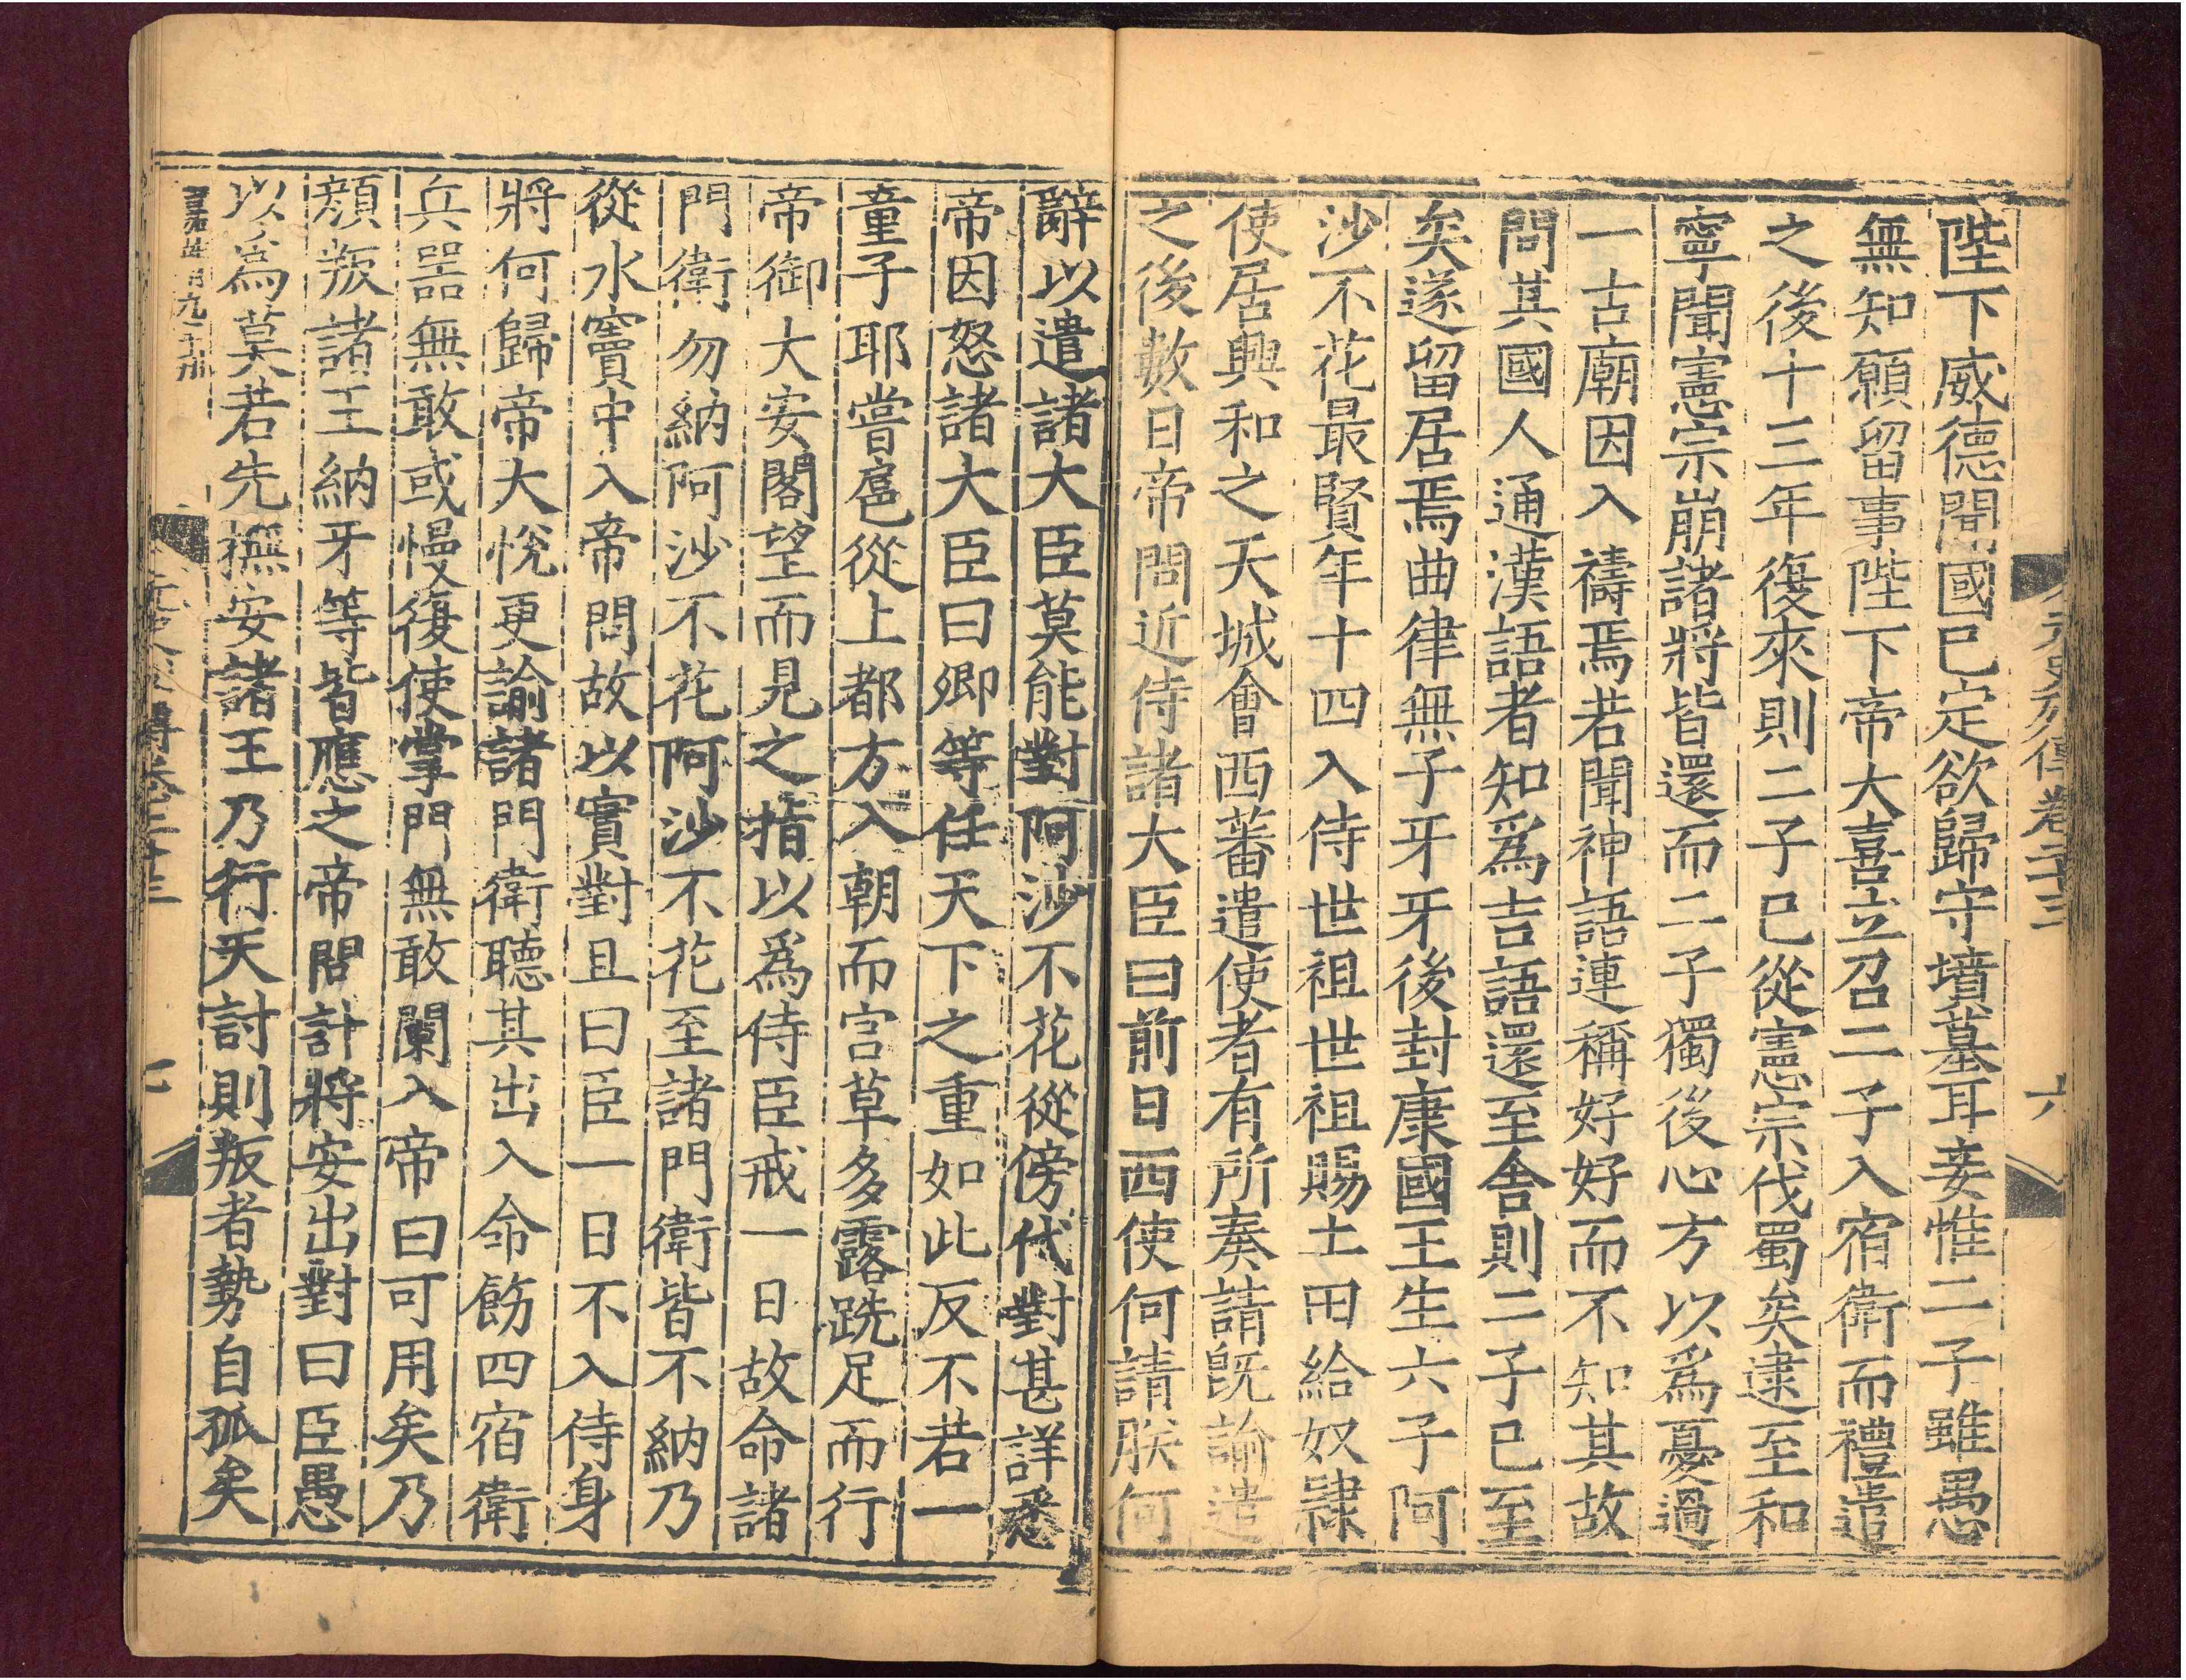 元史列傳卷二十三 六
陛下威德聞國已定欲歸守墳墓耳妾惟二子雖愚
無知願留事陛下帝大喜立召二子入宿衛而禮遣
之後十三年復來則二子已從憲宗伐蜀矣逮至和
寧聞憲宗崩諸將皆還而二子獨後心方以爲憂過
一古廟因入禱焉若聞神語連稱好好而不知其故
問其國人通漢語者知爲吉語還至舍則二子已至
矣遂留居焉曲律無子牙牙後封康國王生六子阿
沙不花最賢年十四入侍世祖世祖賜土田給奴隸
使居興和之天城會西蕃遣使者有所奏請既諭遣
之後數日帝問近侍諸大臣曰前日西使何請朕何
辭以遣諸大臣莫能對阿沙不花從傍代對甚詳悉
帝因怒諸大臣曰卿等任天下之重如此反不若一
童子耶嘗扈從上都方入朝而宫草多露跣足而行
帝御大安閣望而見之指以爲侍臣戒一日故命諸
門衛勿納阿沙不花阿沙不花至諸門衛皆不納乃
從水竇中入帝問故以實對且曰臣一日不入侍身
將何歸帝大悅更諭諸門衛聽其出入命飭四宿衛
兵器無敢或慢復使掌門無敢闌入帝曰可用矣乃
顔叛諸王納牙等皆應之帝問計將安出對曰臣愚
以爲莫若先撫安諸王乃行天討則叛者勢自孤矣
傳卷二十三